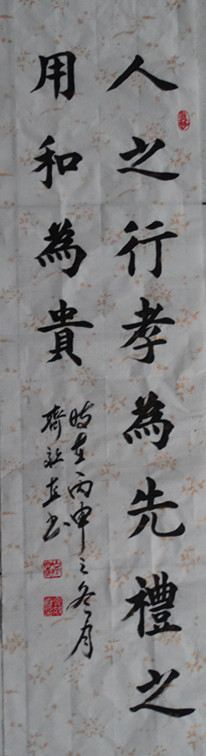 人之行孝為先禮之
用和為貴
時在丙申之冬月
齊書